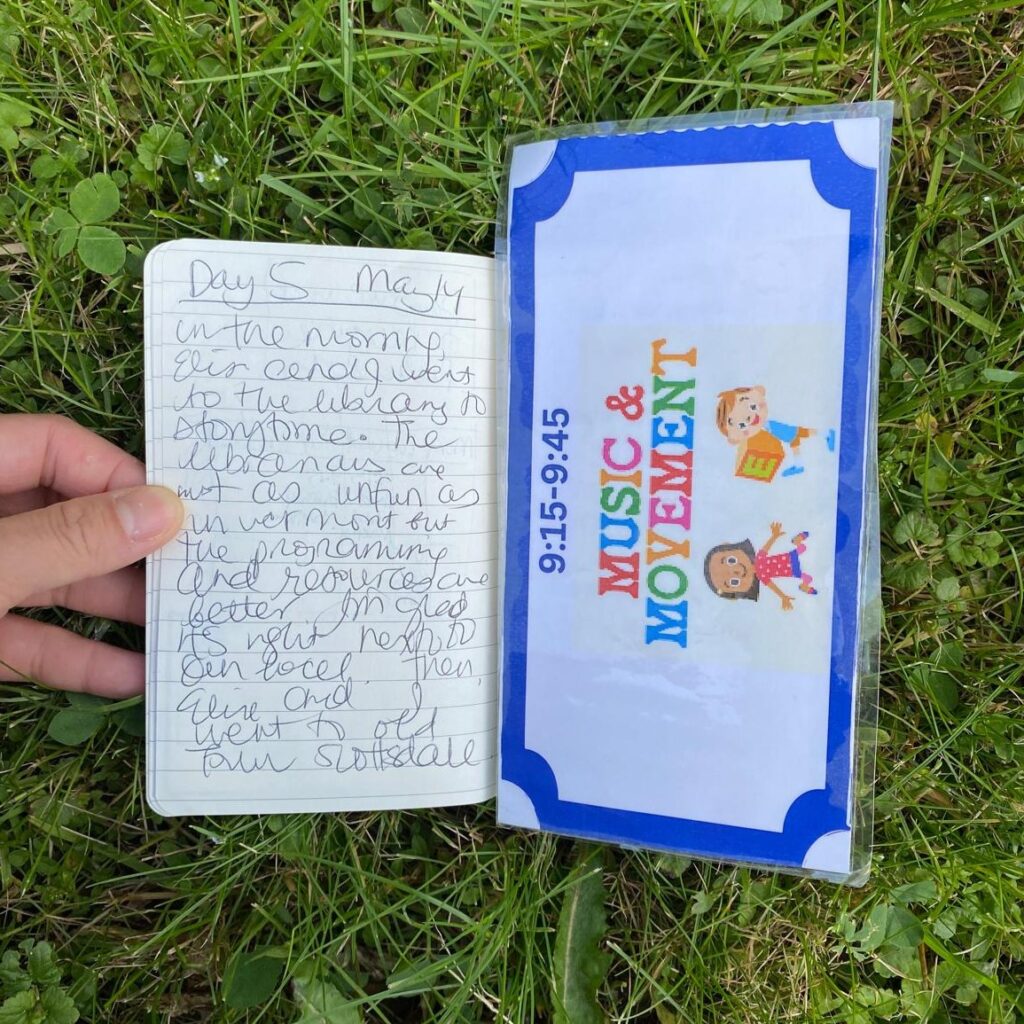 Day 5 May 14
in the morning,
Elise and I went
to the library to
storytime. The
librarians are
not as unfun as
in vermont but
the programing
and resources are
better Im glad
its right next to
our local. Then,
Elise and I
went to old
Town Scottsdale
9:15-9:45
MUSIC &
MOVEMENT
E